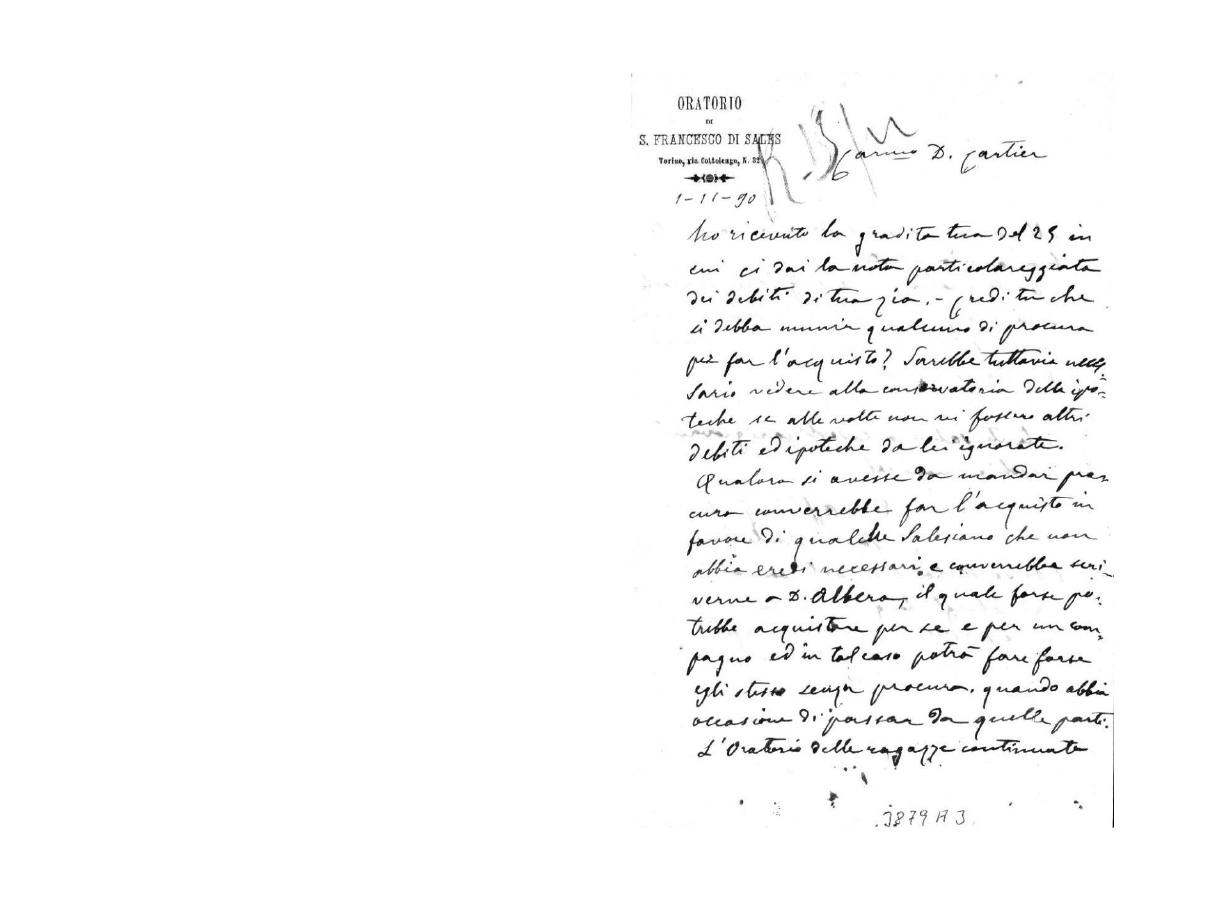 ORATORIO
DI
S. FRANCESCO DI SALES
Torino, via Cottolengo, N. 32
1-11-90
Carmo D. Cartier
ho ricevuto la gradita tua del 25 in
cui ci dai la nota particolareggiata
dei debiti di tua zia. - Credi tu che
si debba munir qualcuno di procura
per far l'acquisto? Sarebbe tuttavia neces
sario vedere alla conservatoria delle ipo=
teche se alle volte non vi fossero altri
debiti ed ipoteche da lei ignorate.
Qualora si avesse da mandar pro=
cura converrebbe far l'acquisto in
favore di qualche Salesiano che non
abbia eredi necessari e converrebbe scri-
verne a D. Albera, il quale forse po-
trebbe acquistare per se e per un com-
pagno ed in tal caso potrà fare forse
egli stesso senza procura, quando abbia
occasione di passar da quelle parti.
L'Oratorio delle ragazze continuate
3879 A 3